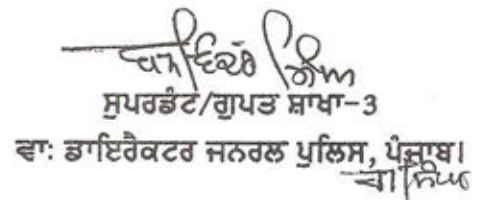 ਸੁਪਰਡੰਟ/ਗੁਪਤ ਸ਼ਾਖਾ-3
ਵਾ: ਡਾਇਰੈਕਟਰ ਜਨਰਲ ਪੁਲਿਸ, ਪੰਜਾਬ।